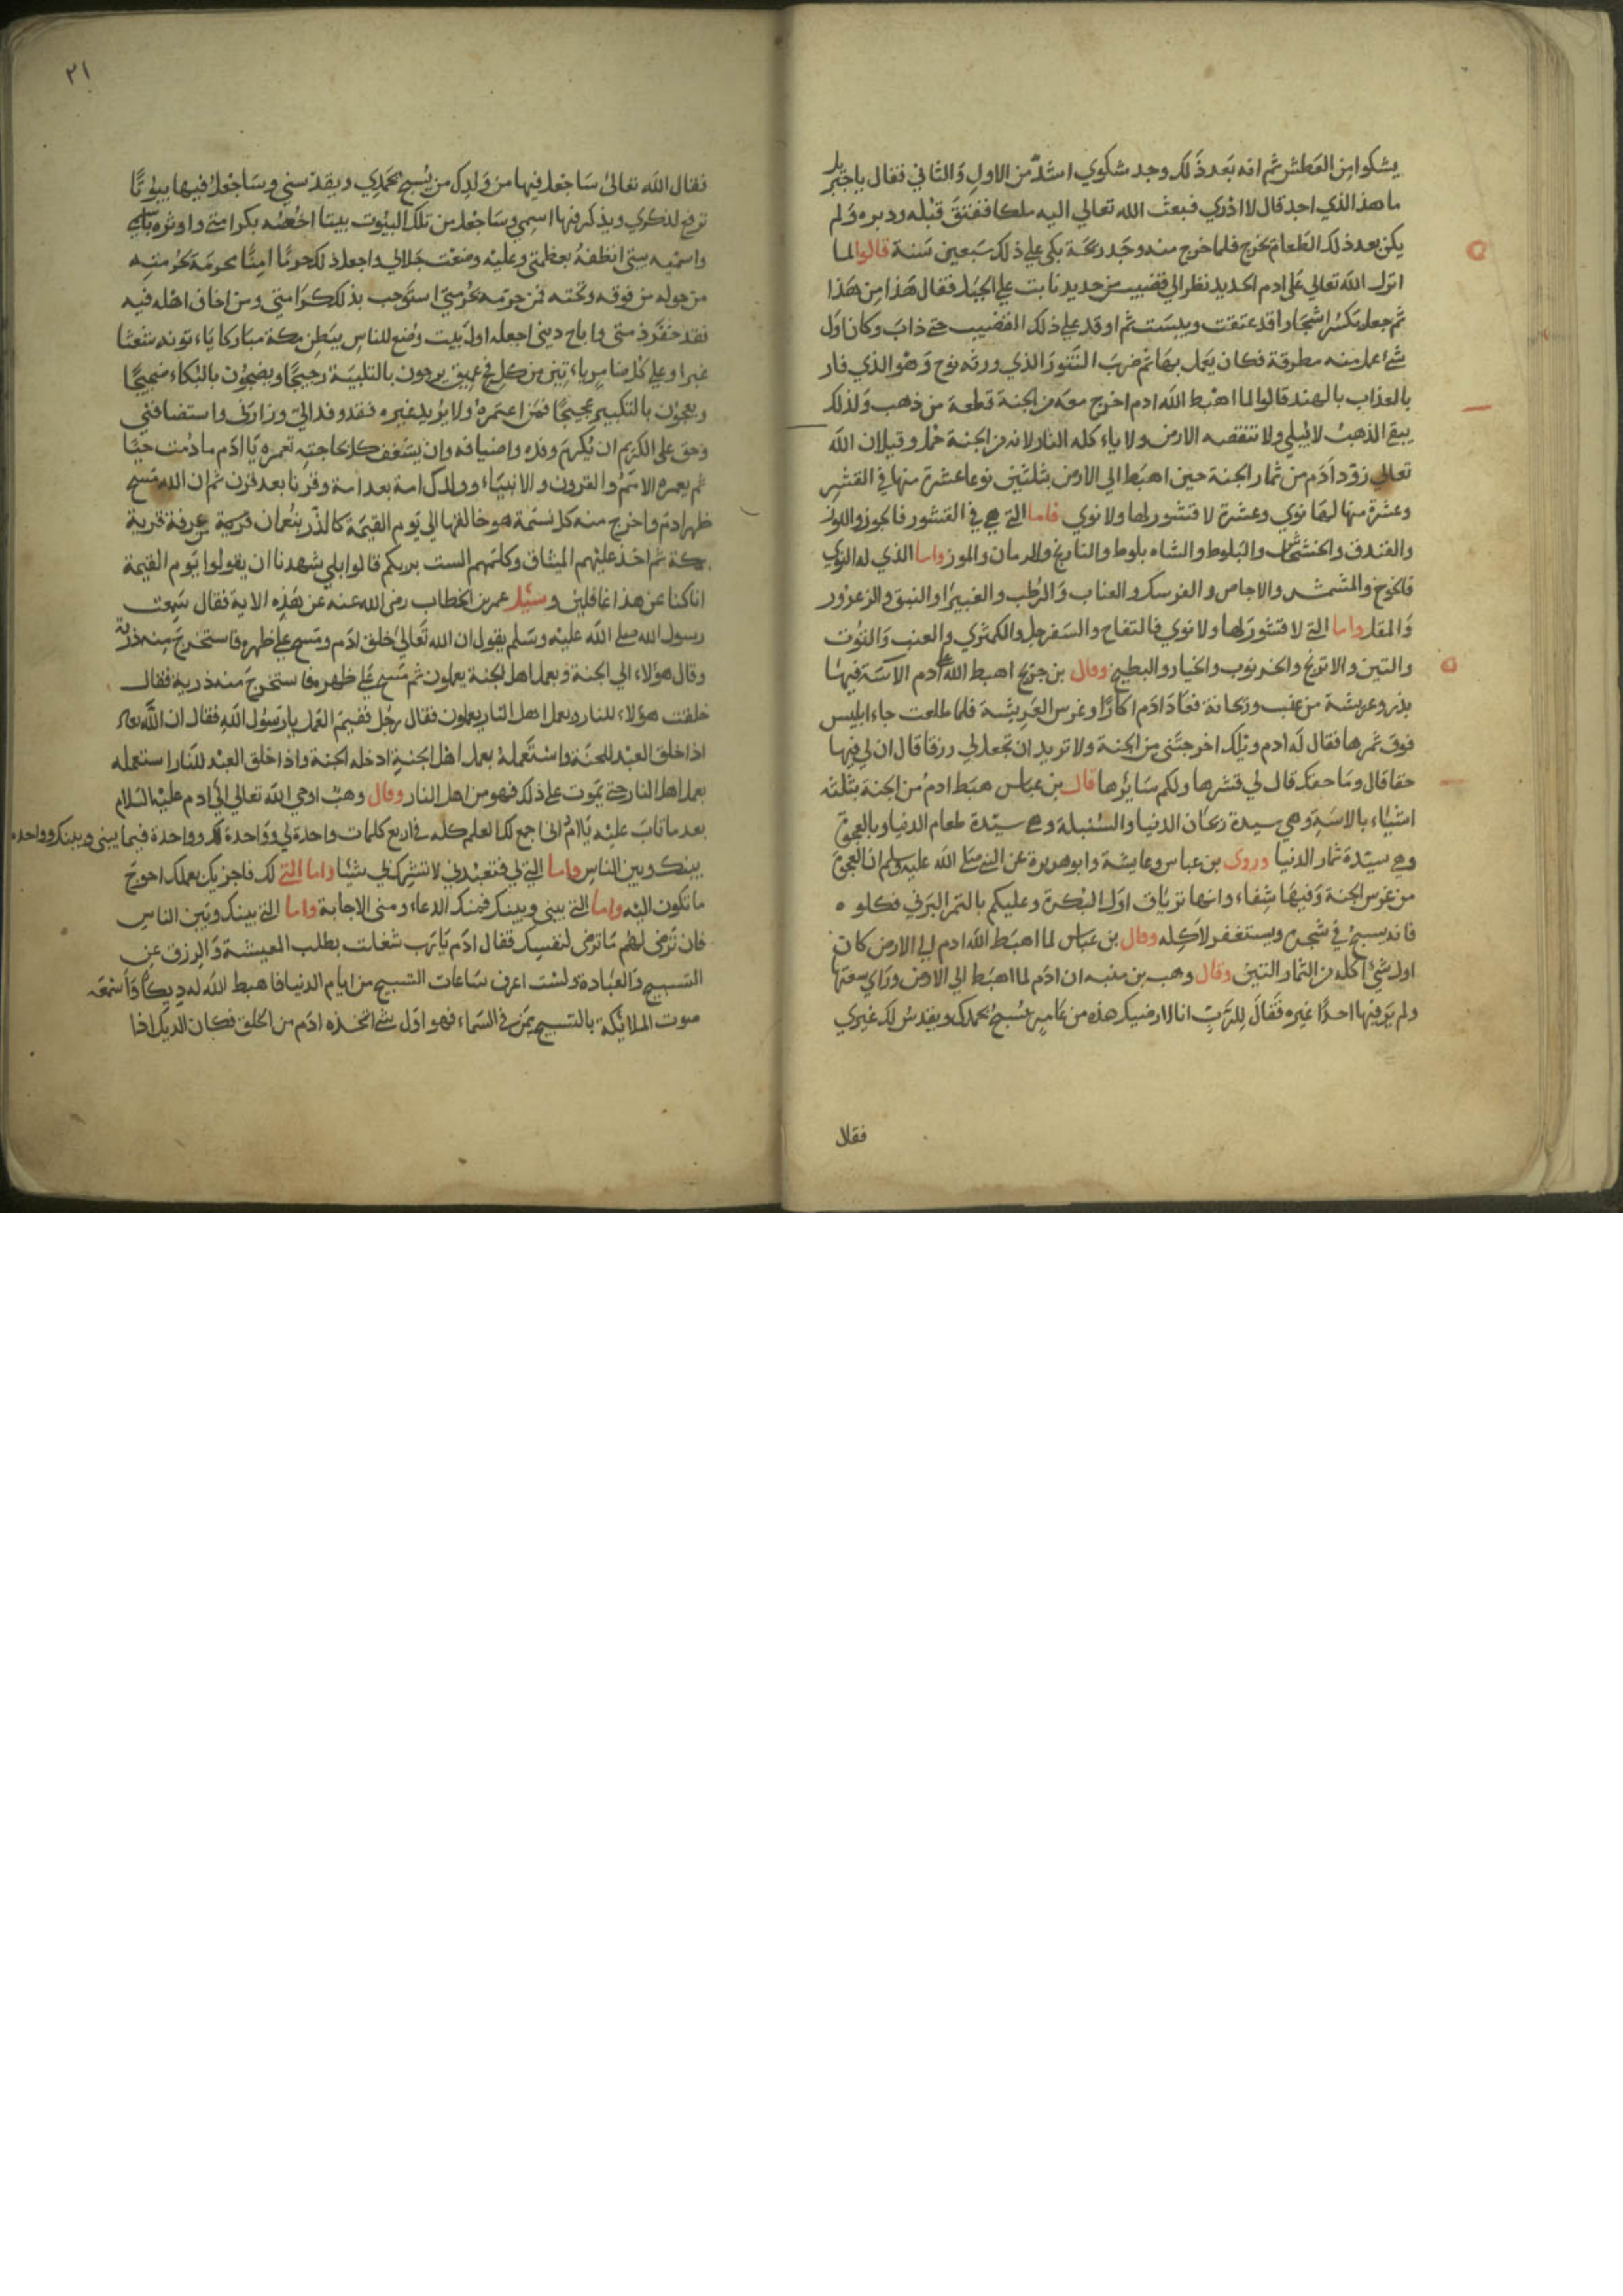 يشكوا من العطش ثم انه بعد ذلك وجد شكوي اشد من الاول والثاني فقال يا جبريل
ما هذا الذي اجد قال لا ادري فبعث الله تعالي اليه ملكا ففتق قبله ودبره ولم
يكن بعد ذلك الطعام يخرج فلما خرج منه وجد ريحة بكى علي ذلك سبعين سنة قالوا لما
انزل الله تعالي علي ادم الحديد نظر الي قضيب من حديد نابت علي الجبل فقال هذا من هذا
ثم جعل يكسر اشجارا قد عتقت ويبست ثم اوقد علي ذلك القضيب حتي ذاب وكان اول
شئ عمل منه مطرقة فكان يعمل بها ثم ضرب التنور الذي ورثه نوح وهو الذي فار
بالعذاب بالهند قالوا لما اهبط الله ادم اخرج معه من الجنة قطعة من ذهب ولذلك
يبقي الذهب لا يبلي ولا تنقصه الارض ولا ياء كله النار لانه من الجنة حمل وقيل ان الله
تعالي زود ادم من ثمار الجنة حين اهبط الي الارض بثلثين نوعا عشرة منها في القشر
وعشرة منها لها نوي وعشرة لا قشور لها ولا نوي فاما التي هي في القشور فالجوز واللوز
والفندق والخشخاش والبلوط والشاه بلوط والنارنج والرمان والموز واما الذي له النوي
فالخوخ والمشمش والاجاص والفرسك والعناب والرطب والغبيرا والنبق والزعرور
والمقل واما التي لا قشور لها ولا نوي فالتفاح والسفرجل والكمثري والعنب والتوت
والتين والاترنج والخرنوب والخيار والبطيخ وقال بن جريج اهبط الله ادم الاسة فيها
بذر وعريشة من عنب وريحانة فعاد ادم اكارا وغرس العريشة فلما طلعت جاء ابليس
فوق ثمرها فقال له ادم ويلك اخرجتني من الجنة ولا تريد ان تجعل لي رزقا قال ان لي فيها
حقا قال وما حقك قال لي قشرها ولكم سايرها قال بن عباس هبط ادم من الجنة بثلثه
اشياء بالاسة وهي سيدة ريحان الدنيا والسنبلة وهي سيدة طعام الدنيا وبالعجوة
وهي سيدة ثمار الدنيا وروى بن عباس وعايشة وابو هريرة عن النبي صلي الله عليه وسلم ان العجوة
من غرس الجنة وفيها شفاء وانها ترياق اول البكرة وعليكم بالتمر البرني فكلوه
فانه يسبح في شجره ويستغفر لاكله وقال بن عباس لما اهبط الله ادم الي الارض كان
اول شئ اكله من الثمار التين وقال وهب بن منبه ان ادم لما اهبط الي الارض وراي سعتها
ولم ير فيها احدا غيره فقال للرب انا لارضيك هذه من عامر يسبح بحمدك ويقدس لك غيري
فقال
٢١
فقال الله تعالي ساجعل فيها من ولدك من يسبح بحمدي ويقدسني وساجعل فيها بيوتا
ترفع لذكري ويذكر فيها اسمي وساجعل من تلك البيوت بيتا اخصه بكرامتي واوثره باسمي
واسميه بيتي انطقه بعظمتي وعليه وضعت جلالي واجعل ذلك حرما امنا بحرمة يحرمته
من حوله من فوقه وتحته فمن حرمه بحرمتي استوجب بذلك كرامتي ومن اخاف اهله فيه
فقد خفر ذمتي واباح ديني اجعله اول بيت وضع للناس ببطن مكة مباركا ياء تونه شعثا
غبرا وعلي كل ضامر ياء تين من كل فج عميق يرجون بالتلبية رجيجا ويضجون بالبكاء ضجيجا
ويعجون بالتكبير عجيجا فمن اعتمره ولا يريد غيره فقد وفد الي وزارني واستضافني
وحق علي الكريم ان يكرم وفده واضيافه وان يسعف كلا بحاجته تعمره يا ادم ما دمت حيا
ثم يعمره الامم والقرون والانبياء وولدك امة بعد امة وقرنا بعد قرن ثم ان الله مسح
ظهر ادم واخرج منه كل نسمة هو خالقها الي يوم القيمة كالذر بنعمان قرية عرفة قرية
مكة ثم اخذ عليهم الميثاق وكلمهم الست بربكم قالوا بلي شهدنا ان يقولوا يوم القيمة
انا كنا عن هذا غافلين وسئل عمر بن الخطاب رضي الله عنه عن هذه الاية فقال سمعت
رسول الله صلي الله عليه وسلم يقول ان الله تعالي خلق ادم ومسح علي ظهره فاستخرج منه ذرية
وقال هؤلاء الي الجنة وبعمل اهل الجنة يعملون ثم مسح علي ظهره فاستخرج منه ذرية فقال
خلقت هؤلاء للنار وبعمل اهل النار يعملون فقال رجل ففيم العمل يا رسول الله فقال ان الله تعالي
اذا خلق العبد للجنة واستعمله بعمل اهل الجنة ادخله الجنة واذا خلق العبد للنار استعمله
بعمل اهل النار حتي يموت علي ذلك فهو من اهل النار وقال وهب اوحي الله تعالي الي ادم عليه السلام
بعد ما تاب عليه يا ادم اني اجمع لك العلم كله في اربع كلمات واحدة لي وواحدة لك وواحدة فيما بيني وبينك وواحده
بينك وبين الناس واما التي لي فتعبدني لا تشرك بي شيئا واما التي لك فاجزيك بعملك احوج
ما تكون اليه واما التي بيني وبينك فمنك الدعاء ومني الاجابة واما التي بينك وبين الناس
فان ترضي لهم ما ترضي لنفسك فقال ادم يا رب شغلت بطلب المعيشة والرزق عن
التسبيح والعبادة ولست اعرف ساعات التسبيح من ايام الدنيا فاهبط الله له ديكا واسمعه
صوت الملائكة بالتسبيح يمن في السماء فهو اول شئ اتخذه ادم من الخلق فكان الديك اذا